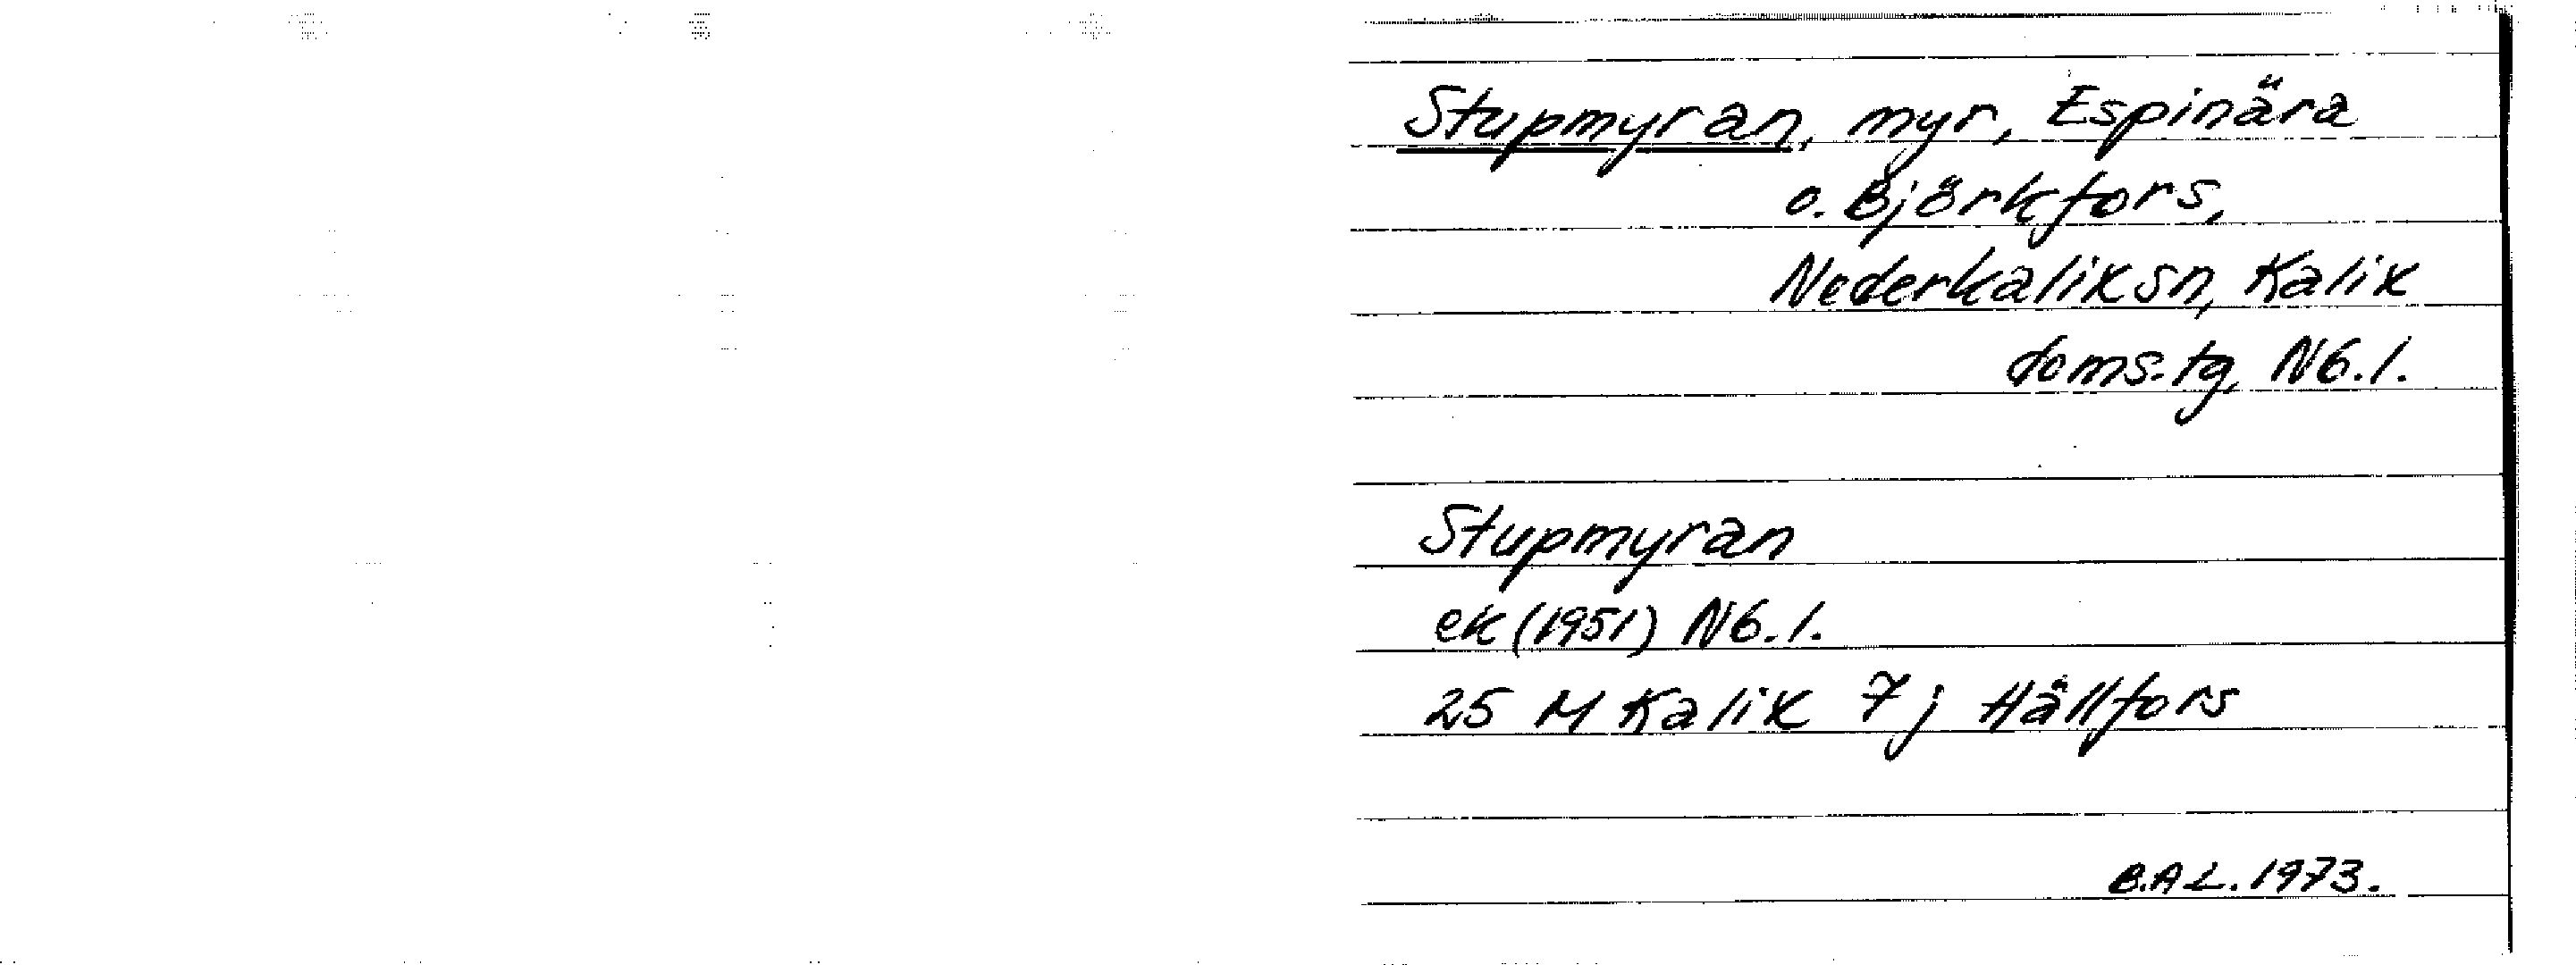 Stupmyran, myr, Espinära
o. Björkfors,
Nederkalix sn, Kalix
doms.tg, Nb.l.
Stupmyran
ek (1951) Nb.l.
25 M Kalix 7j Hällfors
B.A L. 1973.